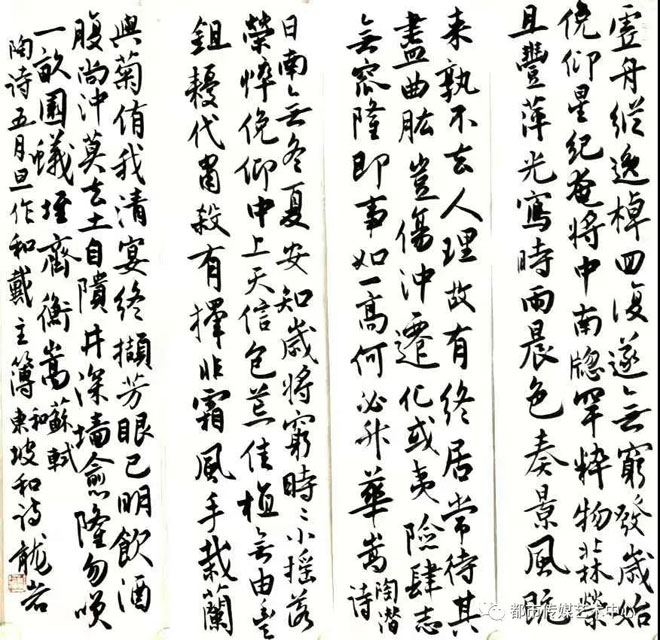 虛舟縱逸棹回復遂無窮發歲始
俛仰星紀奄將中南牕罕粹物北林榮
且豐萍光寫時雨晨色奏景風既
來孰不去人理故有終居常待其
盡曲肱豈傷沖遷化或夷險肆志
無窊隆即事如一高何必升華嵩 陶潛詩
日南無冬夏安知歲將窮時〻小搖落
榮悴俛仰中上天信包荒佳植無由豐
鉏耰代肅殺有擇非霜風手栽蘭
與菊侑我清宴終擷芳眼已明飲酒
腹尚沖莫去土自隤井深墻愈隆勿咲
一畝園蟻垤齊衡嵩 蘇軾和
陶詩五月旦作和戴主簿 東坡和詩 龍岩
都市传媒艺术中心